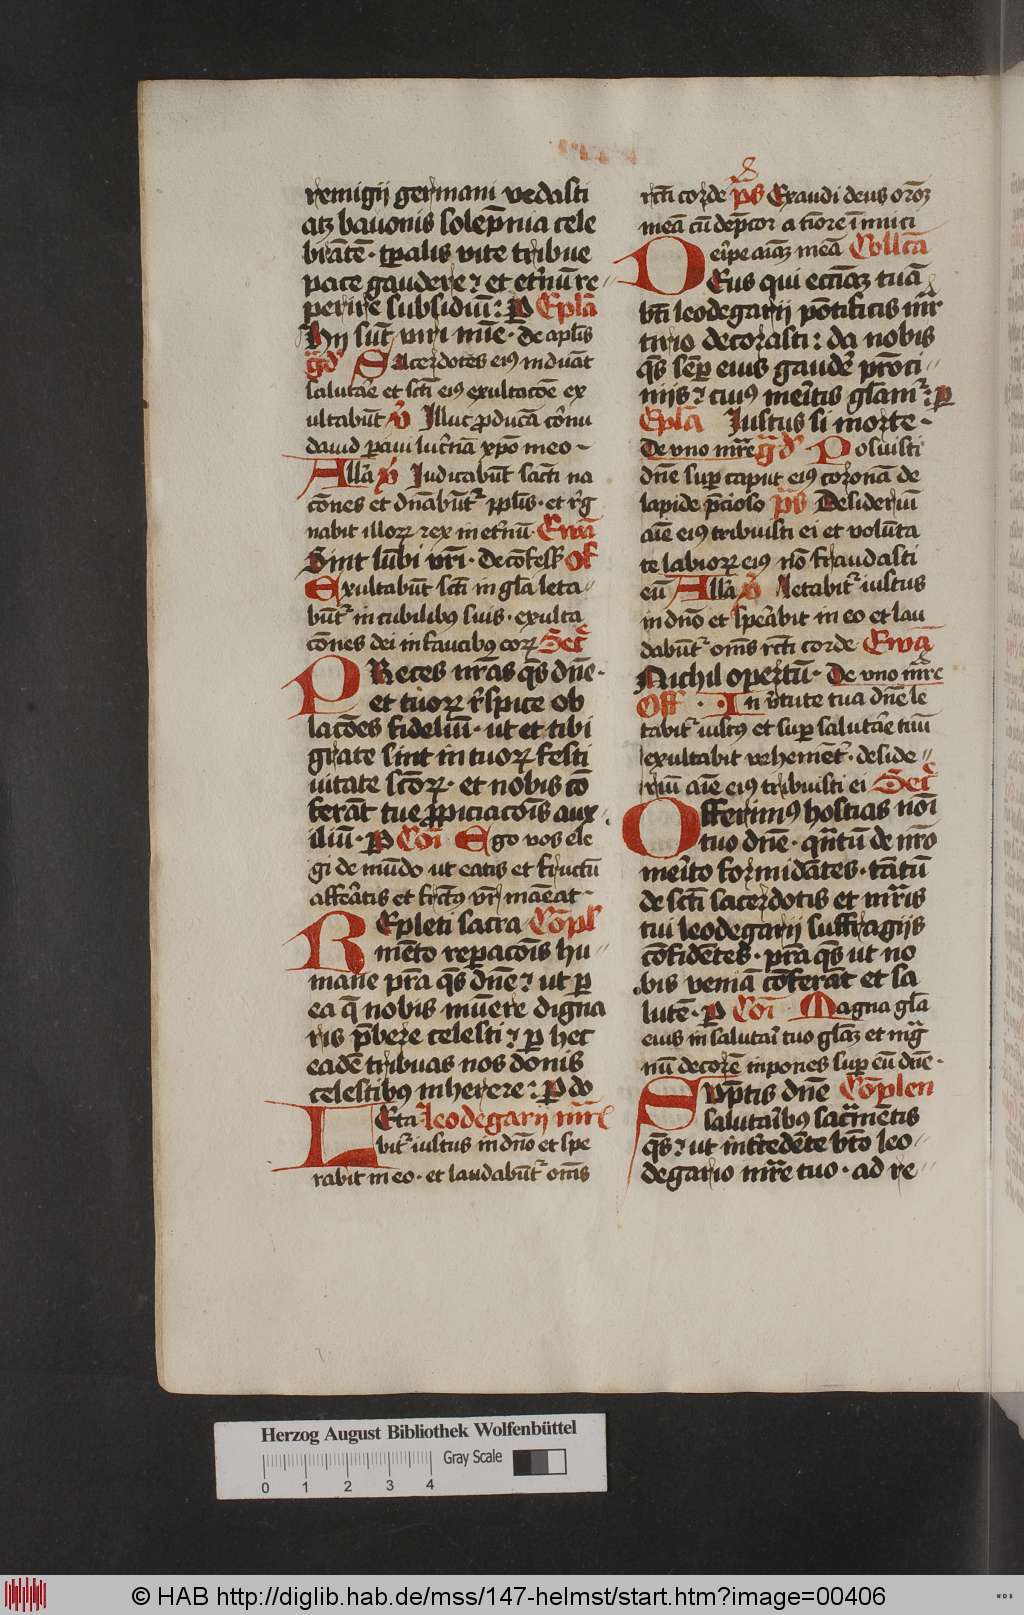 remigij germani vedasti
atqꝫ bauonis solēpnia cele
brātē · tꝑalis vite tribue
pace gaudere ⁊ et et'nū re
perire subsidiū : P Eplā
Hij sūt viri mīe · De aplīs
Sacerdotes eiꝰ induāt
salutar̄e et sctī eiꝰ exultacōe ex
ultabūt v̄ Illuc ꝓducā cornu
dauid paui lucernā xp̄o meo
Allā v̄ Judicabūt sacti na
cōnes et dn̄abūt' pplīs · et r̄g
nabit illoꝝ rex in et'nū · Ewā
Sint lūbi vr̄i · De cōfess Of
Exultabūt sctī in gl̄a leta
būt' in cubilibꝰ suis · exulta
cōnes dei in faucibꝰ eoꝝ Secr̄
PReces nr̄as qs̄ dn̄e ·
et tuoꝝ r̄spice ob
lacōes fideliū · ut et tibi
grate sint in tuoꝝ festi
uitate sctōꝝ · et nobis cō
ferāt tue ꝓpiciacōis aux
iliū · P Cōī Ego vos ele
gi de mūdo ut eatis et fructū
afferatis et frctꝰ vr̄ maneat
REpleti sacra Cōpl
mēto reparacōis hu
mane pr̄a qs̄ dn̄e ⁊ ut ꝑ
ea q̄ nobis mūere digna
ris p̄bere celesti ⁊ ꝑ hec
eadē tribuas nos donis
celestibꝰ inherere : P do
LEta Leodegarij mr̄
bit' iustus in dn̄o et spe
rabit in eo · et laudabūt' om̄s
rcti corde p̄s Exaudi deus orōꝫ
meā cū dep̄cor a tīore īimici
eripe aiāꝫ meā Collcā
DEus qui eccīaꝫ tuā
btī leodegarij pōtificis mr̄
tirio decorasti : da nobis
qs̄ sēꝑ eius gauder̄e pr̄oci
niis ⁊ cuiꝰ meritis gl̄am' : P
Eplā Iustus si morte ·
De vno mr̄e gd' Posuisti
dn̄e suꝑ caput eiꝰ coronā de
lapide p̄cioso p̄s Desideriū
aīe eiꝰ tribuisti ei et volūta
te labioꝝ eiꝰ nō fraudasti
eū Allā v̄ Letabit' iustus
in dn̄o et sperabit in eo et lau
dabūt' om̄s rcti corde Ewā
Nichil opertū · De vno mr̄e
Off · In v'tute tua dn̄e le
tabit' iustꝰ et suꝑ salutar̄e tuū
exultabit vehemēt' · deside
riū aīe eiꝰ tribuisti ei Secr̄
Offerimꝰ hostias noī
tuo dn̄e · qn̄tū de nr̄o
merito formidātes · tātū
de sctī sacerdotis et mr̄is
tui leodegarij suffragijs
cōfidētes · pr̄a qs̄ ut no
bis veniā cōferāt et sa
lutē · P Cōī Magna gl̄a
eius in salutari tuo gl̄aꝫ et mḡ
nū decorē inpones suꝑ eū dn̄e ·
Sūptis dn̄e Cōplen
salutaribꝰ sacr̄mētis
qs̄ ⁊ ut int'cedēte bt̄o leo
degario mr̄e tuo · ad re
Herzog August Bibliothek Wolfenbüttel
0 1 2 3 4 Gray Scale
© HAB http://diglib.hab.de/mss/147-helmst/start.htm?image=00406